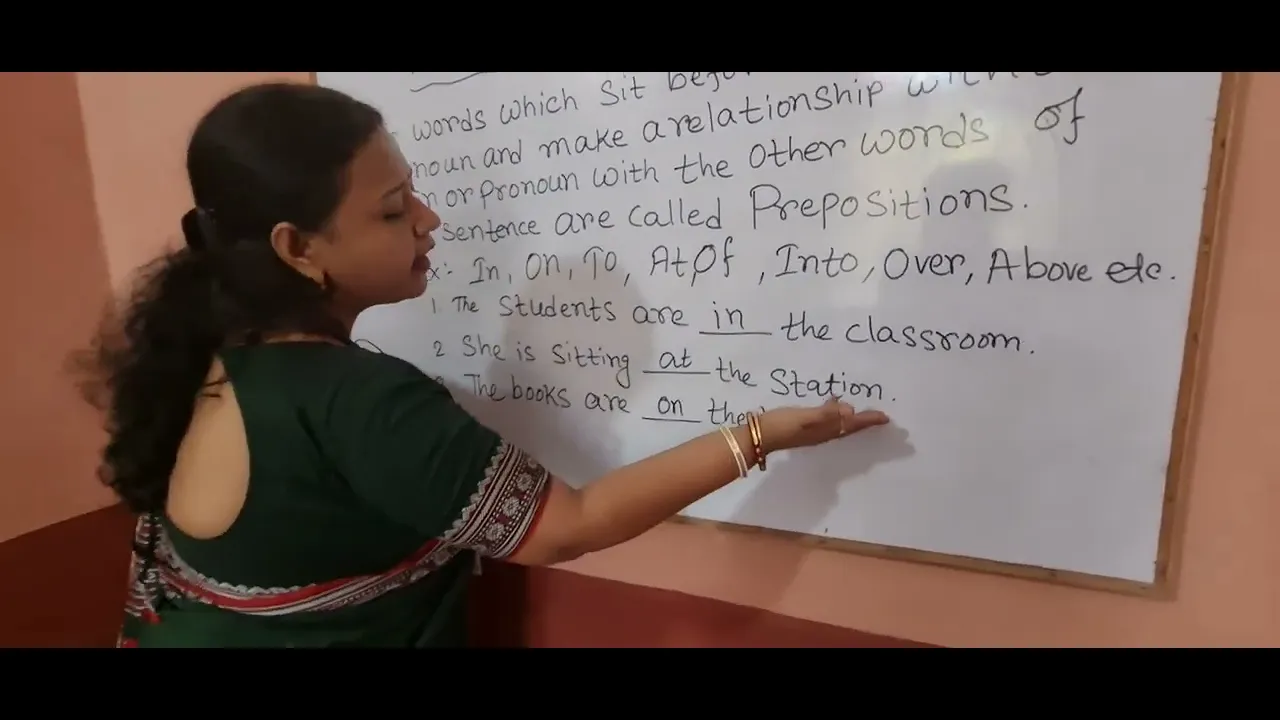 words which sit
noun and make a relationship
or pronoun with the other words of
sentence are called Prepositions.
In, On, To, At Of, Into, Over, Above etc.
1 The Students are in the classroom.
2 She is sitting at the Station.
The books are on the